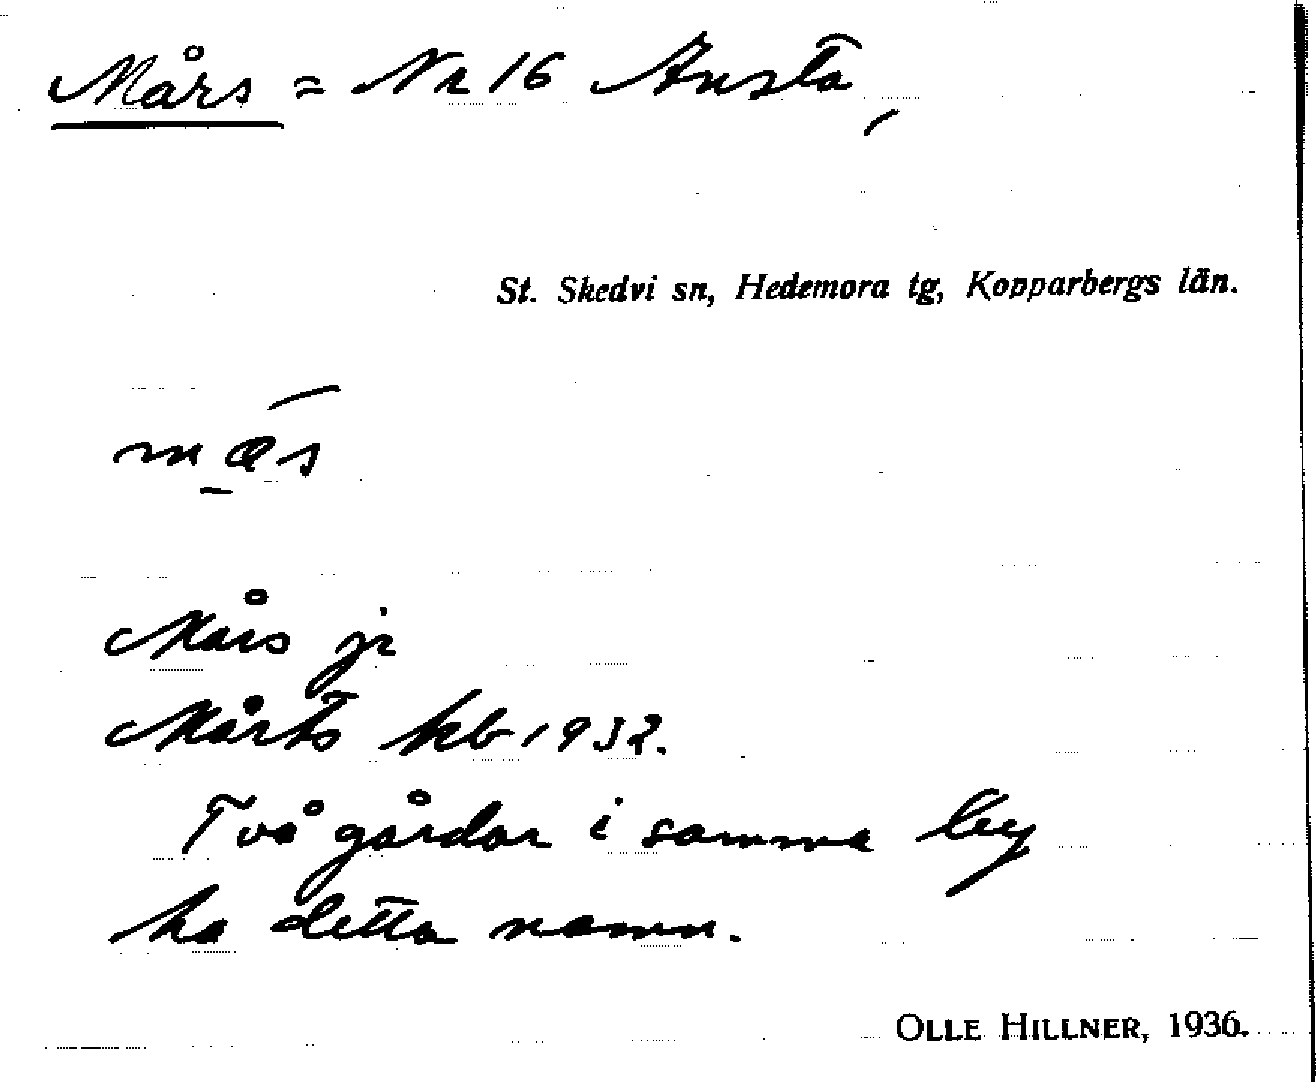 Mårs = Nr 16 Ansta,
St. Skedvi sn, Hedemora tg, Kopparbergs län.
Mårs jr
Mårts kb 1932.
Två gårdar i samma by
ha detta namn.
OLLE HILLNER, 1936.